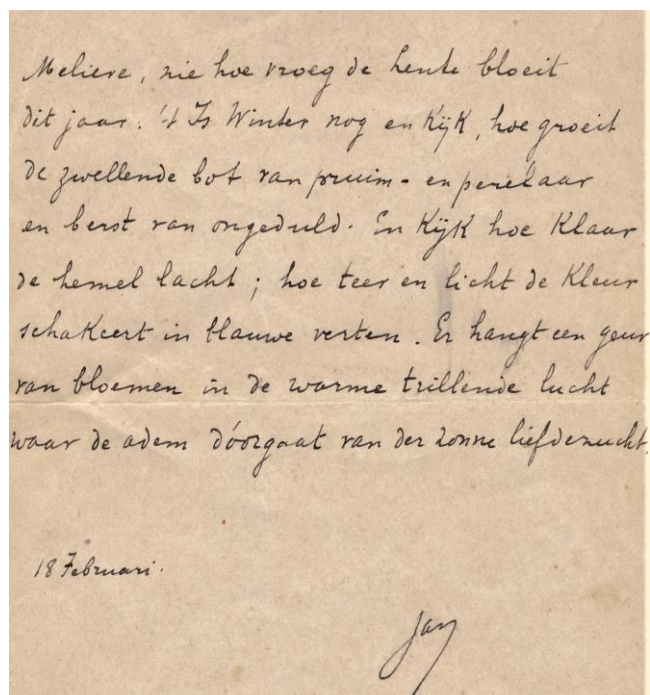 Meliere, zie hoe vroeg de hente bloeit
dit jaar. 't Is Winter nog en Kijk, hoe groeit
de zwellende bot van pruim- en perelaar
en berst van ongeduld. En Kijk hoe Klaar
de hemel lacht; hoe teer en licht de Kleur
schaKeert in blauwe verten. Er hangt een geur
van bloemen in de warme trillende lucht
waar de adem dóorgaat van der zonne liefdezucht.
18 Februari.
Jan